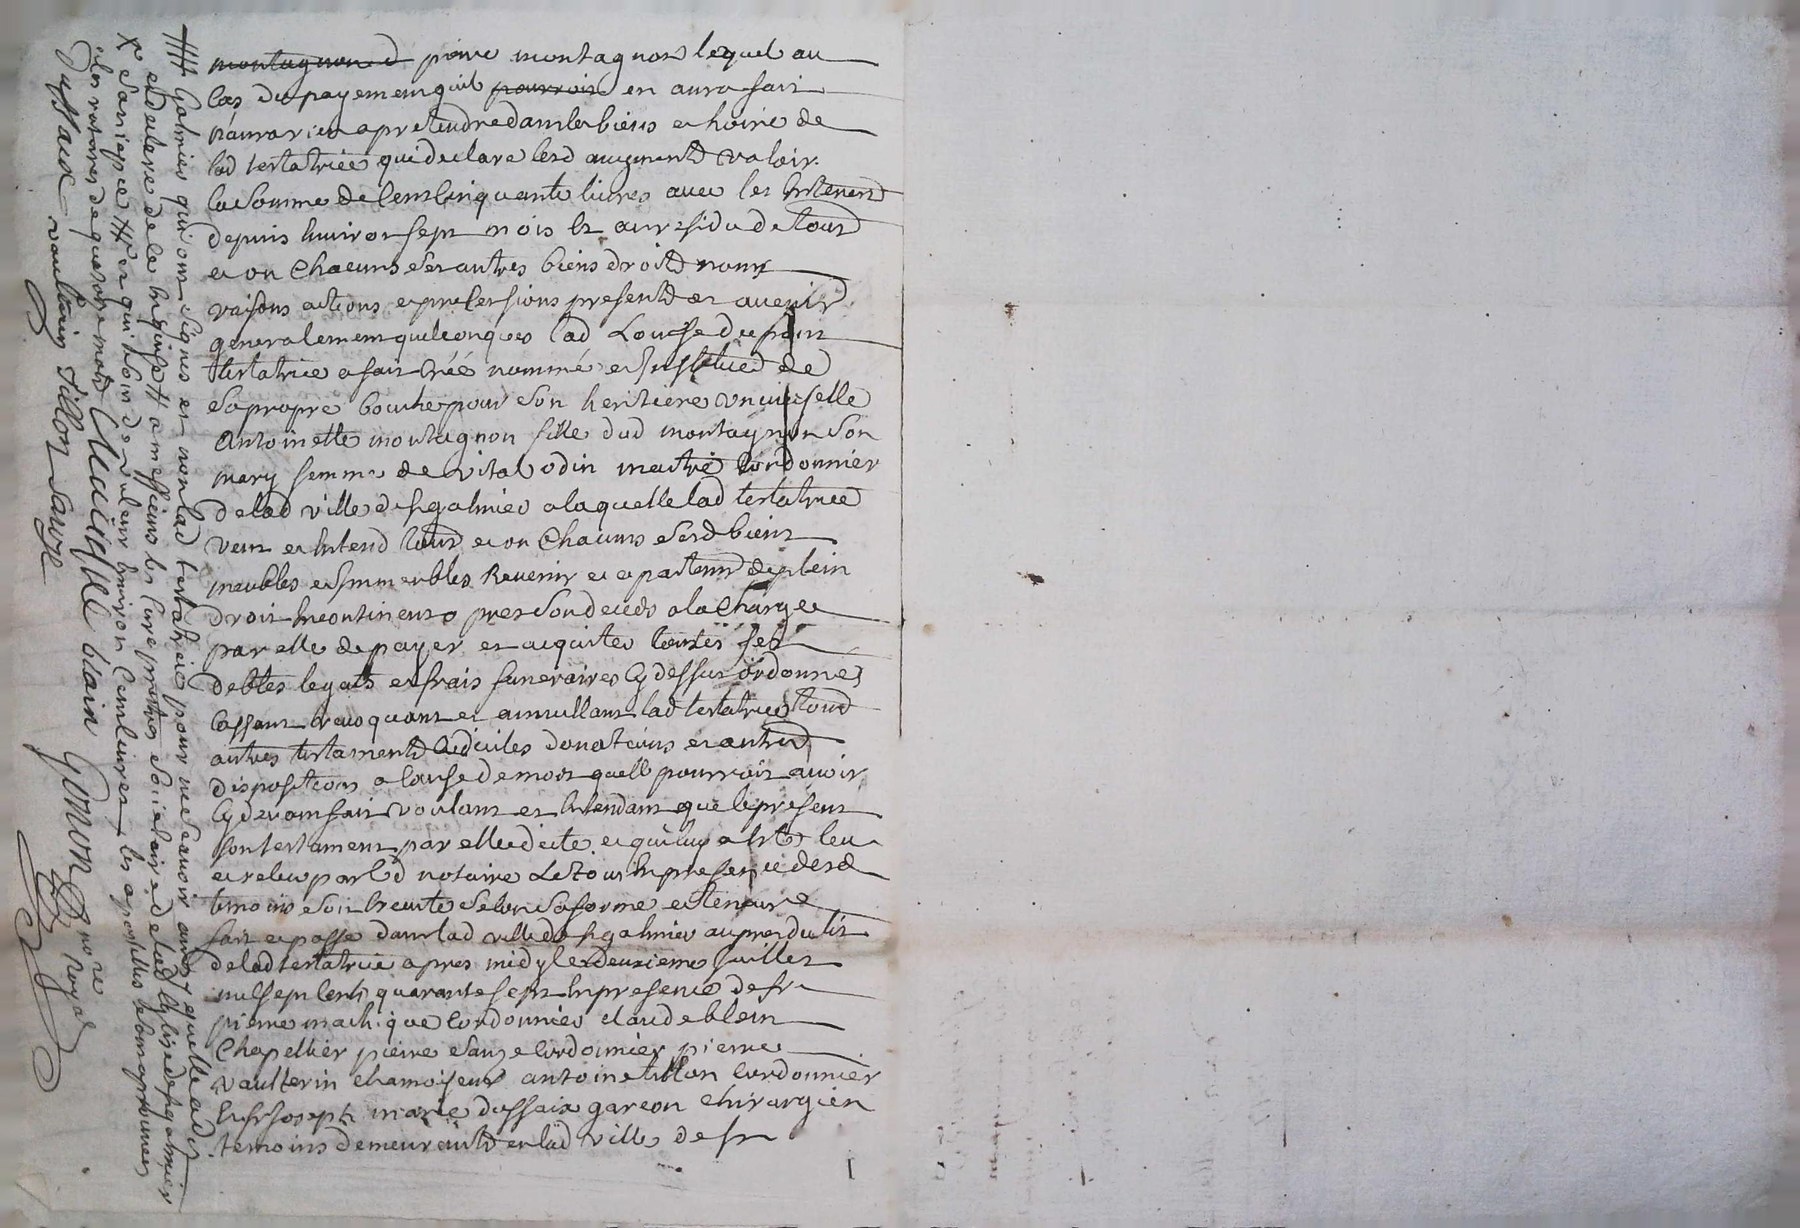 montagnond pierre montagnon lequel au
cas du payement quil pourroit en aura fait
n'aura rien a pretendre dans les biens et hoirie de
lad testatrice qui declare lesd augmentd valoir
la somme de cent cinquante livres avec les
depuis huit ou sept mois et au residu de tous
et un chacuns ses autres biens droitd noms
raisons actions et pretensions presentd et avenir
generalement quelconques lad Louise dufour
testatrice a fait créé nommé et Institued de
sa propre bouche pour son heritiere universelle
Antoinette montagnon fille dud montagnon son
mary femme de vital odin maitre Cordonnier
de lad ville de st galmier a laquelle lad testatrice
veut et Intend tous et un chacuns sesd biens
meubles et Immeubles Revenir et apartenir de plein
droit Incontinent apres son deceds a la charge
par elle de payer et acquiter toutes ses
debtes legats et frais funeraires cy dessus ordonnes
Cassant revoquant et annullant lad testatrice tous
autres testamentd Codiciles donations et autres
dispositions a cause de mort quelle pourroit avoir
cy devant fait voulant et Intendant que le present
son testament par elle dicte et qui luy a esté leu
et releu par led notaire Le tout In presence desd
temoins soit Execute selon sa forme et teneur
fait et passé dans lad ville de st galmier aupres du lit
de lad testatrice apres midy le deuxieme Juillet
mil sept cents quarante sept In presence de sr
pierre mach que Cordonnier claude blein
Chapellier pierre sauze Cordonnier pierre
vaulterin chamoiseur antoine tillon Cordonnier
Et sr Joseph marie dussaix garcon chirurgien
temoins demeurantd en lad ville de st
Galmier qui ont signes et non lad testatrice pour ne scavoir
et de celle de la a messieurs les cure pretres societaires de lad Eglise de st galmier
sans et qui sont de valeur environ cent livres les apostilles
Dussaix vaulterin tillon sauze
Claude blain Gonon no.re royal